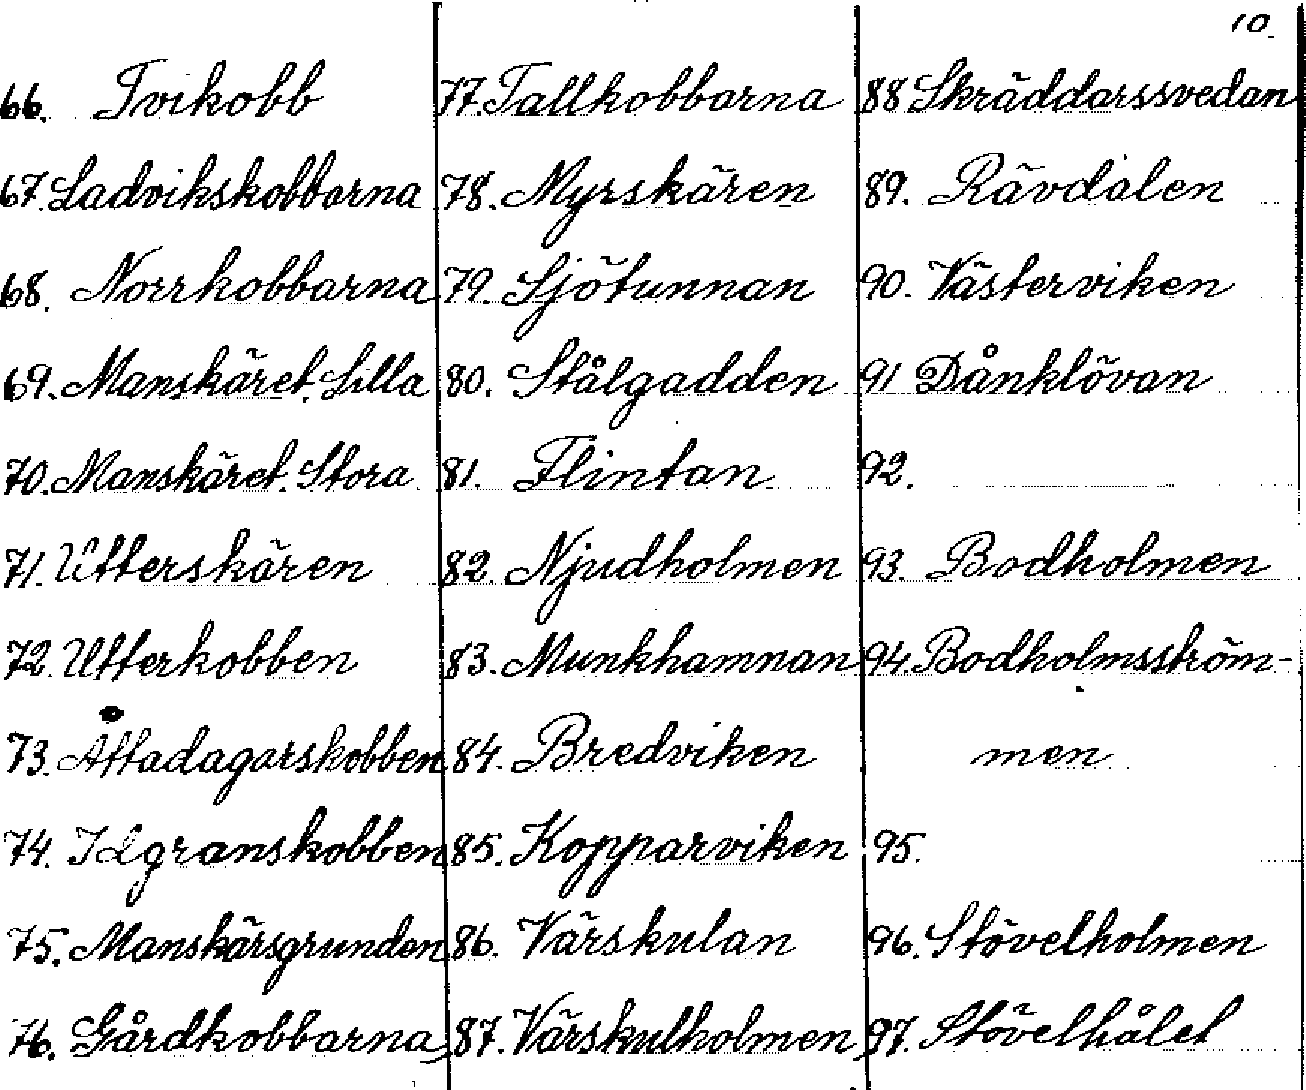 10.
66. Tvikobb
67. Ladvikskobbarna
68. Norrkobbarna
69. Manskäret. Lilla
70. Manskäret. Stora
71. Utterskären
72. Utterkobben
73. Åttadagarskobben
74. Idgranskobben
75. Manskärsgrunden
76. Gårdkobbarna
77. Tallkobbarna
78. Myrskären
79. Sjötunnan
80. Stålgadden
81. Flintan
82. Njudholmen
83. Munkhamnan
84. Bredviken
85. Kopparviken
86. Värskulan
87. Värskulholmen
88 Skräddarssvedan
89. Rävdalen
90. Västerviken
91 Dånklövan
92.
93. Bodholmen
94. Bodholmsström-
men
95.
96. Stövelholmen
97. Stövelhålet